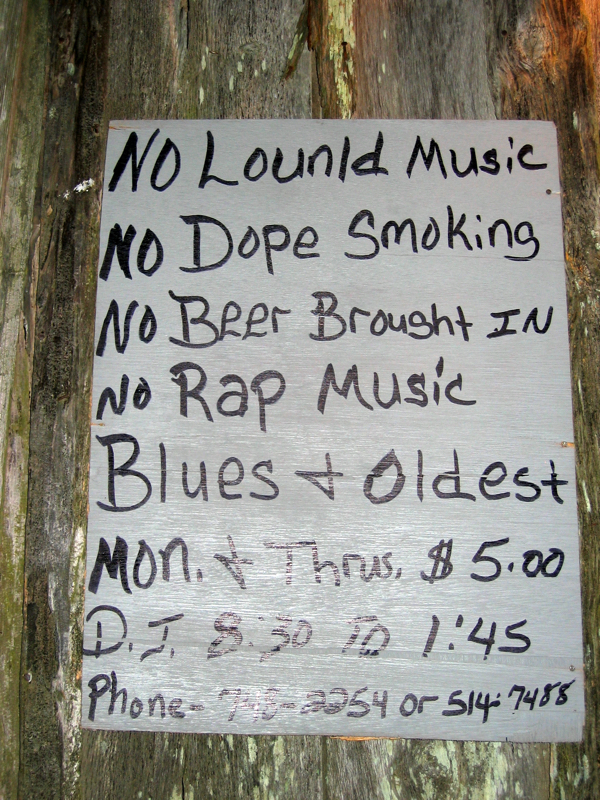 NO Lounld Music
NO Dope Smoking
NO Beer Brought IN
NO Rap Music
Blues + Oldest
Mon. + Thrus. $ 5.00
D.J. 8:30 TO 1:45
Phone- 748-2254 or 514-7488